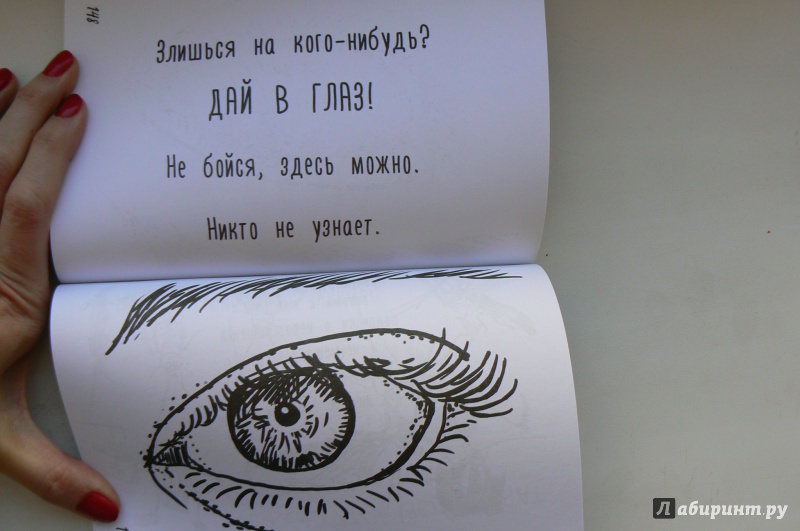 148
Злишься на кого-нибудь?
ДАЙ В ГЛАЗ!
Не бойся, здесь можно.
Никто не узнает.
Лабиринт.ру